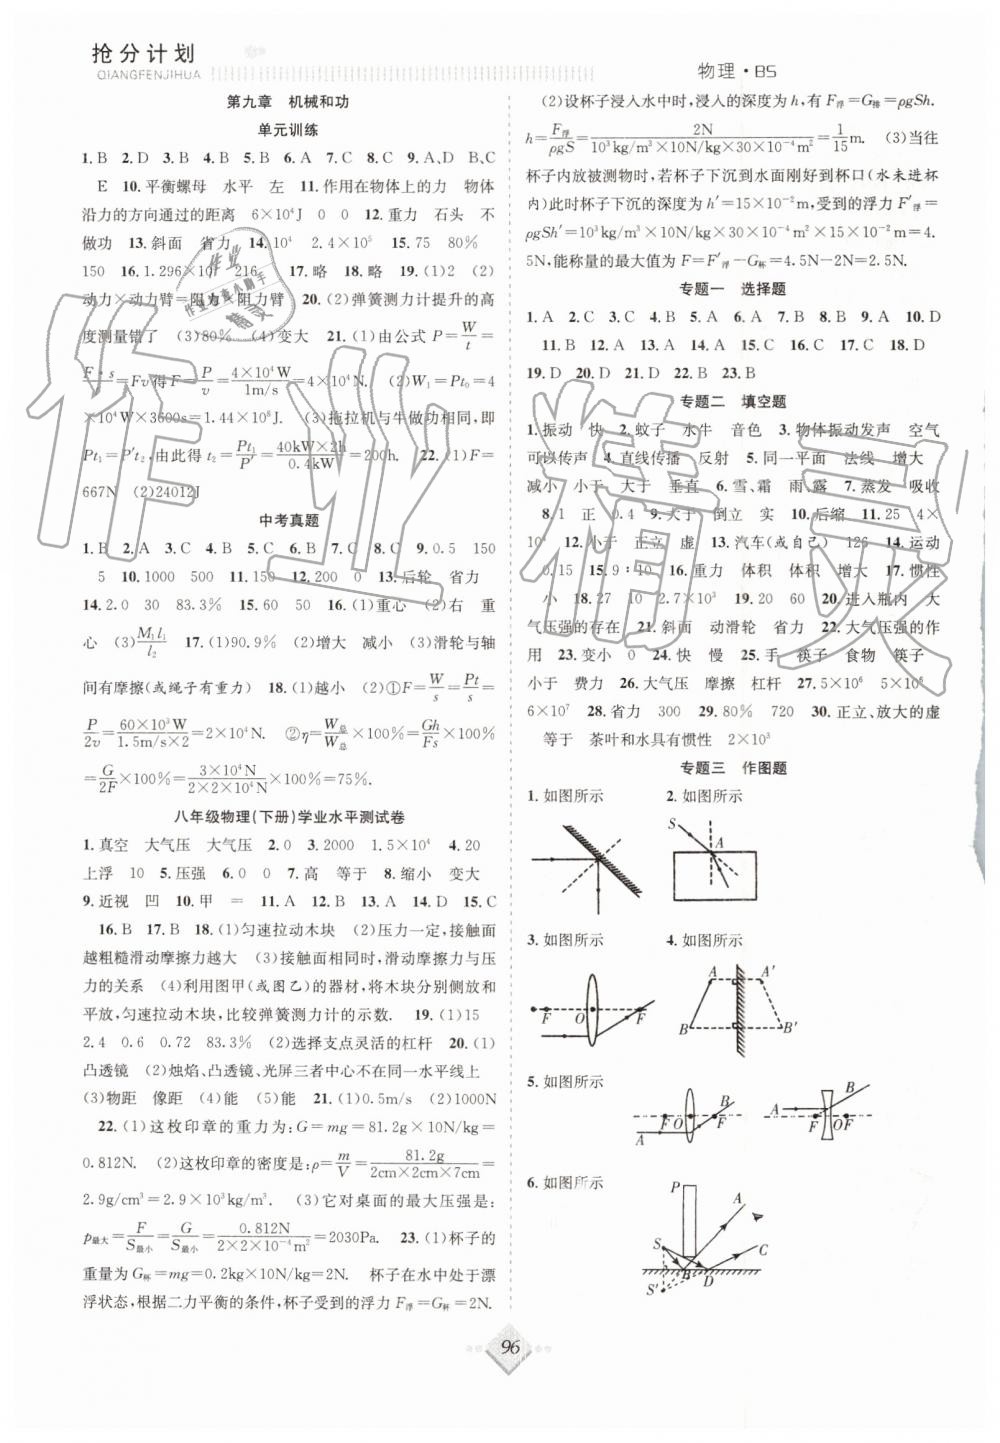 抢分计划
QIANGFENJIHUA
物理·BS
第九章 机械和功
单元训练
1.B 2.D 3.B 4.B 5.B 6.A 7.C 8.C 9.A、D、B、C、
E 10.平衡螺母 水平 左 11.作用在物体上的力 物体
沿力的方向通过的距离 6×10⁴J 0 0 12.重力 石头 不
做功 13.斜面 省力 14.10⁴ 2.4×10⁵ 15.75 80%
150 16.1.296×10 216 17.略 18.略 19.(1)2 (2)
动力×动力臂=阻力×阻力臂 20.(2)弹簧测力计提升的高
度测量错了 (3)80% (4)变大 21.(1)由公式 P=W/t=
F·s/t=Fv得F=P/v=4×10⁴W/1m/s=4×10⁴N. (2)W₁=Pt₀=4
×10⁴W×3600s=1.44×10⁸J. (3)拖拉机与牛做功相同,即
Pt₁=P't₂,由此得 t₂=Pt₁/P'=40kW×2h/0.4kW=200h. 22.(1)F=
667N (2)24012J
中考真题
1.B 2.A 3.C 4.C 5.D 6.B 7.C 8.C 9.0.5 150
5 10.1000 500 11.150 12.200 0 13.后轮 省力
14.2.0 30 83.3% 15.60 50 16.(1)重心 (2)右 重
心 (3)M₁l₁/l₂ 17.(1)90.9% (2)增大 减小 (3)滑轮与轴
间有摩擦(或绳子有重力) 18.(1)越小 (2)①F=W/s=Pt/s=
P/2v=60×10³W/1.5m/s×2=2×10⁴N. ②η=W有/W总×100%=Gh/Fs×100%
=G/2F×100%=3×10⁴N/2×2×10⁴N×100%=75%.
八年级物理(下册)学业水平测试卷
1.真空 大气压 大气压 2.0 3.2000 1.5×10⁴ 4.20
上浮 10 5.压强 6.0 0 7.高 等于 8.缩小 变大
9.近视 凹 10.甲 = 11.A 12.B 13.A 14.D 15.C
16.B 17.B 18.(1)匀速拉动木块 (2)压力一定,接触面
越粗糙滑动摩擦力越大 (3)接触面相同时,滑动摩擦力与压
力的关系 (4)利用图甲(或图乙)的器材,将木块分别侧放和
平放,匀速拉动木块,比较弹簧测力计的示数. 19.(1)15
2.4 0.6 0.72 83.3% (2)选择支点灵活的杠杆 20.(1)
凸透镜 (2)烛焰、光屏三者中心不在同一水平线上
(3)物距 像距 (4)能 (5)能 21.(1)0.5m/s (2)1000N
22.(1)这枚印章的重力为:G=mg=81.2g×10N/kg=
0.812N. (2)这枚印章的密度是:ρ=m/V=81.2g/2cm×2cm×7cm=
2.9g/cm³=2.9×10³kg/m³. (3)它对桌面的最大压强是:
p最大=F/S最小=G/S最小=0.812N/2×2×10⁻⁴m²=2030Pa. 23.(1)杯子的
重量为G杯=mg=0.2kg×10N/kg=2N. 杯子在水中处于漂
浮状态,根据二力平衡的条件,杯子受到的浮力F浮=G杯=2N.
(2)设杯子浸入水中时,浸入的深度为h,有F浮=G排=ρgSh.
h=F浮/ρgS=2N/10³kg/m³×10N/kg×30×10⁻⁴m²=1/15m. (3)当往
杯子内放被测物时,若杯子下沉到水面刚好到杯口(水未进杯
内)此时杯子下沉的深度为h'=15×10⁻²m,受到的浮力F'浮=
ρgSh'=10³kg/m³×10N/kg×30×10⁻⁴m²×15×10⁻²m=4.
5N,能称量的最大值为F=F'浮-G杯=4.5N-2N=2.5N.
专题一 选择题
1.A 2.C 3.C 4.B 5.A 6.C 7.C 8.A 9.A 10.D
11.B 12.D 13.B 14.B 15.D 16.C 17.C 18.D
19.D 20.D 21.D 22.B 23.B
专题二 填空题
1.振动 快 2.蚊子 水牛 音色 3.物体振动发声 空气
可以传声 4.直线传播 反射 5.同一平面 法线 增大
减小 小于 大于 垂直 6.雪、霜 雨、露 7.蒸发 吸收
8.1 正 0.4 9.大于 倒立 实 10.后缩 11.25 4×
10⁵ 12.小于 正立 虚 13.汽车(或自己) 126 14.运动
0.15 15.9∶10 16.重力 体积 体积 增大 17.惯性
小 18.27 10 2.7×10³ 19.20 60 20.进入瓶内 大
气压强的存在 21.斜面 动滑轮 省力 22.大气压强的作
用 23.变小 0 24.快 慢 25.手 筷子 食物 筷子
小于 费力 26.大气压 摩擦 杠杆 27.5×10⁶ 5×10⁶
6×10⁷ 28.省力 300 29.80% 720 30.正立、放大的虚
等于 茶叶和水具有惯性 2×10³
专题三 作图题
1.如图所示 2.如图所示
S A
3.如图所示 4.如图所示
F O F A A' B B'
5.如图所示
A F O F B A F O F B
6.如图所示
P A S C B D S'
96
作业精灵